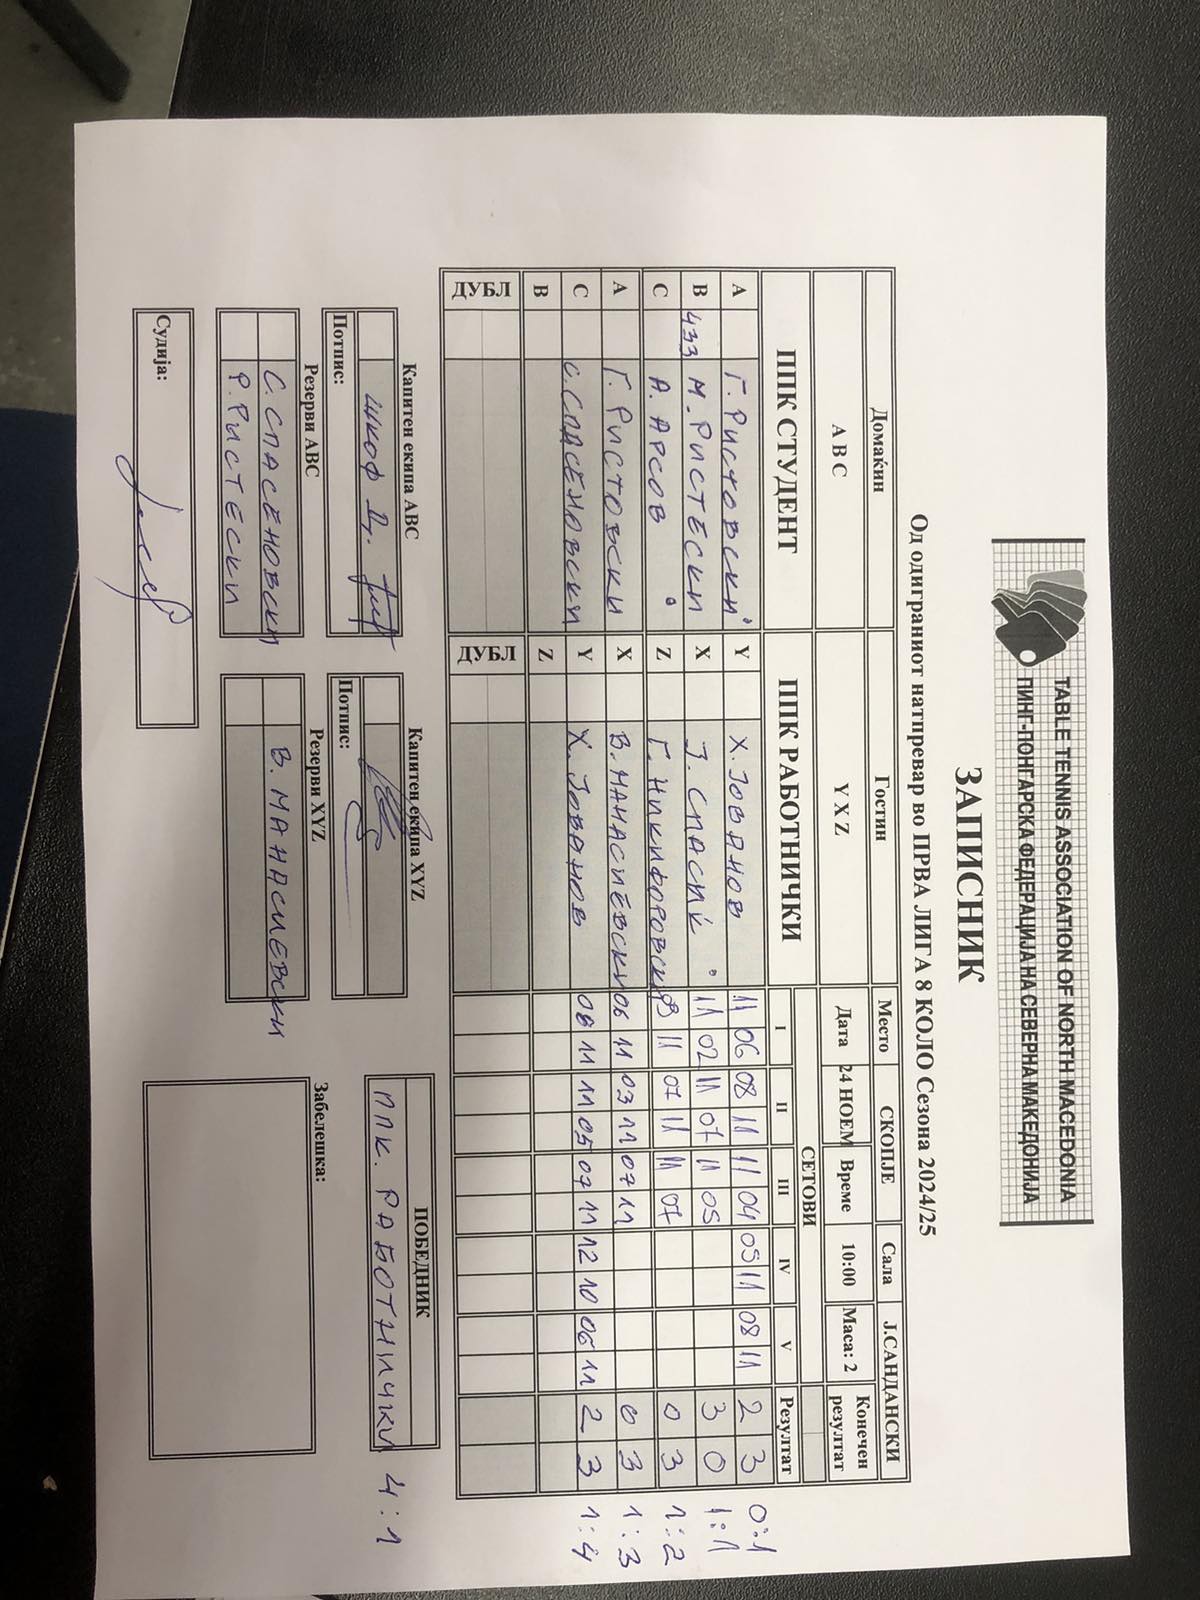 TABLE TENNIS ASSOCIATION OF NORTH MACEDONIA
ПИНГ-ПОНГАРСКА ФЕДЕРАЦИЈА НА СЕВЕРНА МАКЕДОНИЈА
ЗАПИСНИК
Од одиграниот натпревар во ПРВА ЛИГА 8 КОЛО Сезона 2024/25
Домаќин Гостин Место СКОПЈЕ Сала Ј.САНДАНСКИ
A B C Y X Z Дата 24 НОЕМ Време 10:00 Маса: 2 Конечен резултат
ППК СТУДЕНТ ППК РАБОТНИЧКИ СЕТОВИ
I II III IV V Резултат
A Г. РИСТОВСКИ Y Х. ЈОВАНОВ 11 06 08 11 11 04 05 11 08 11 2 3 0:1
B 433 М. РИСТЕСКИ X Ј. СПАСИЌ 11 02 11 07 11 05 3 0 1:1
C А. АРСОВ Z Г. НИКИФОРОВСКИ 11 07 11 11 07 0 3 1:2
A Г. РИСТОВСКИ X В. МАНАСИЕВСКИ 06 11 03 11 07 11 0 3 1:3
C С. СПАСЕНОВСКИ Y Х. ЈОВАНОВ 08 11 11 05 07 11 12 10 06 11 2 3 1:4
B Z
ДУБЛ ДУБЛ
Капитен екипа ABC Капитен екипа XYZ ПОБЕДНИК
ППК. РАБОТНИЧКИ 4:1
Потпис: Потпис:
Резерви ABC Резерви XYZ Забелешка:
С. СПАСЕНОВСКИ В. МАНАСИЕВСКИ
Р. РИСТЕСКИ
Судија: